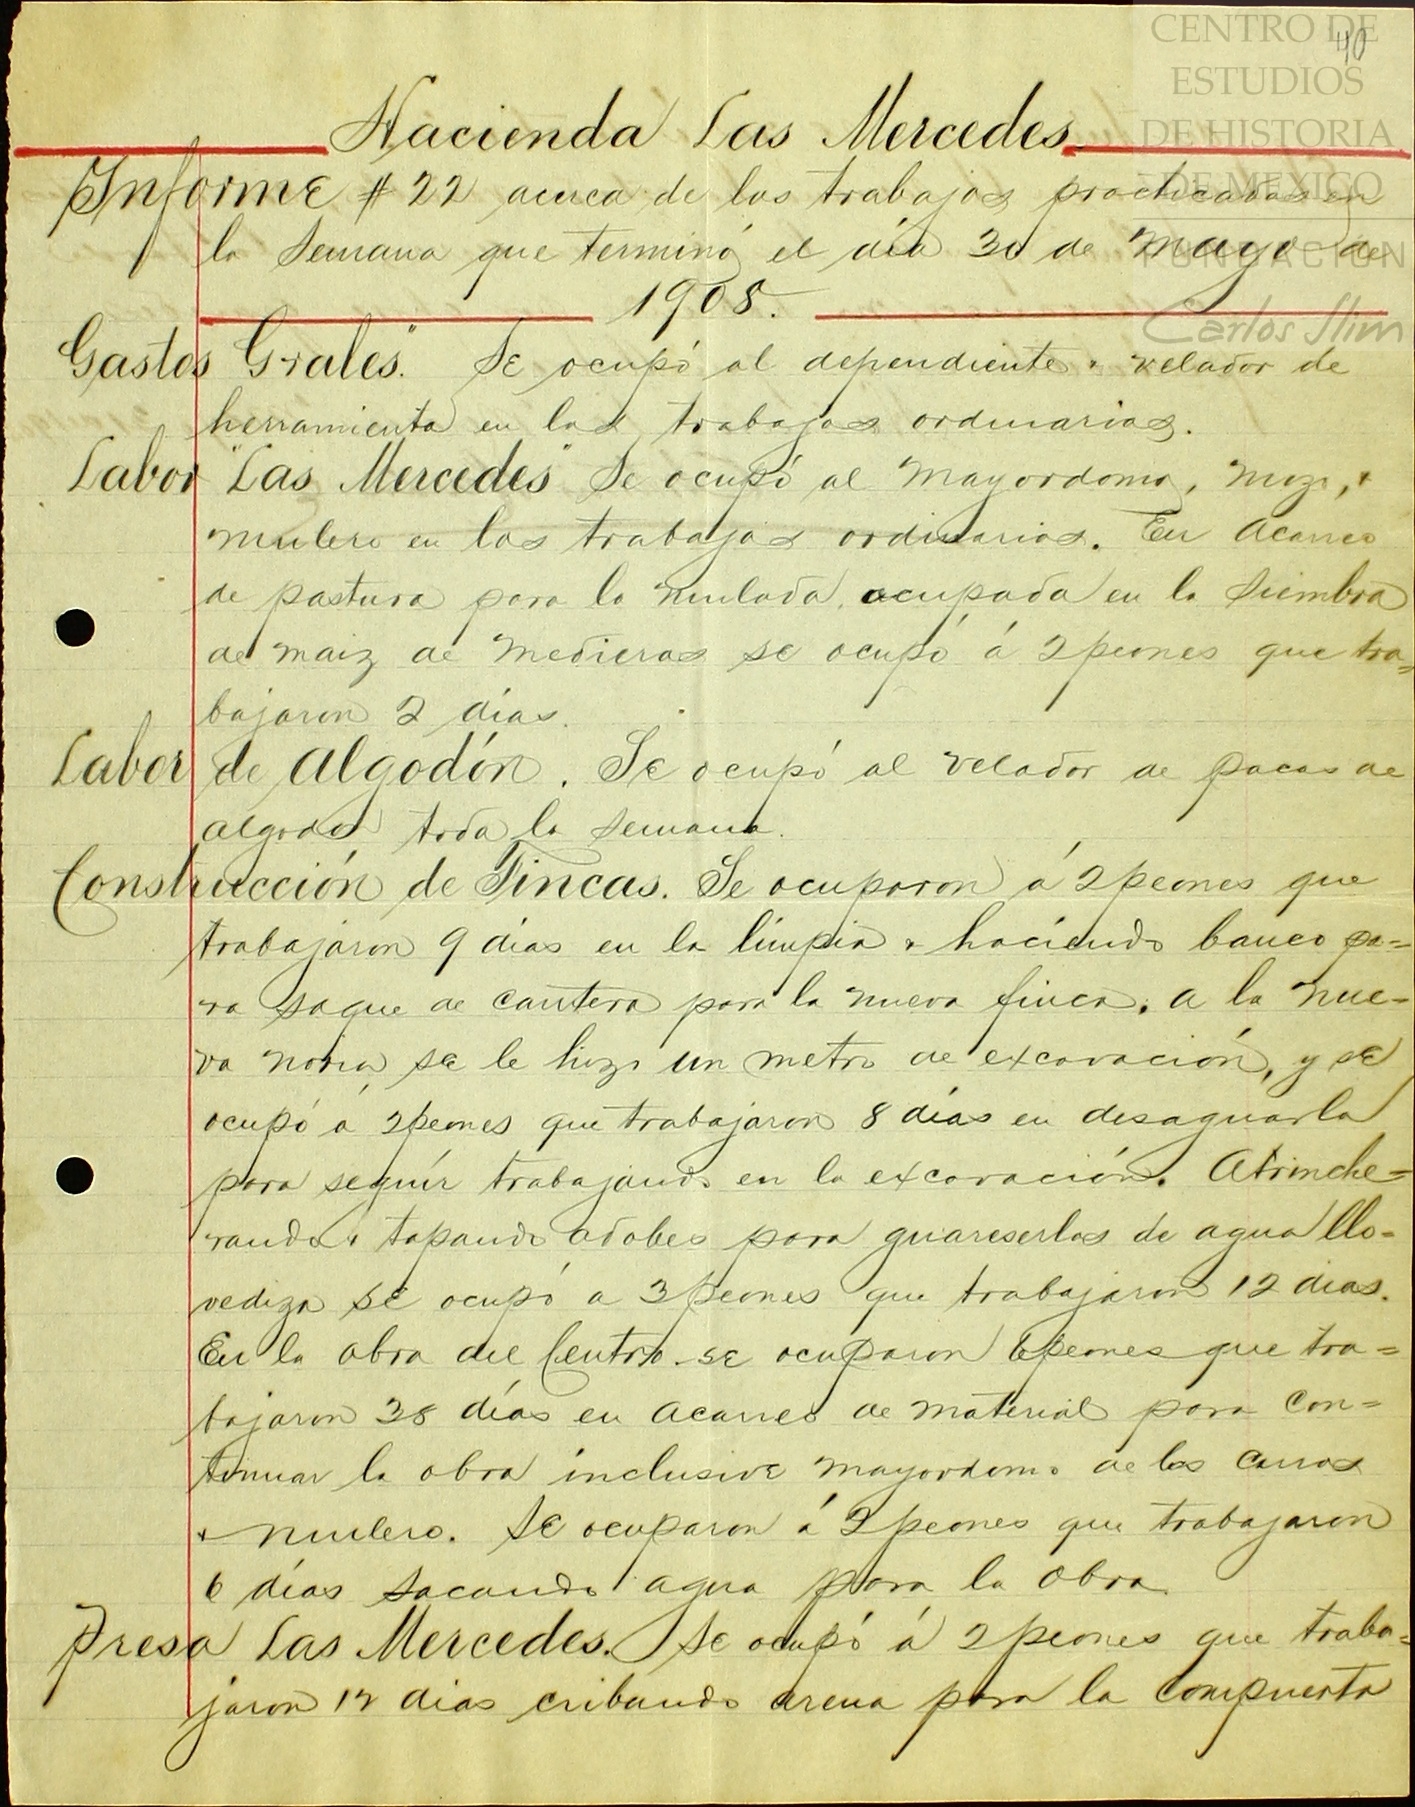 CENTRO DE
ESTUDIOS
DE HISTORIA
DE MEXICO
FUNDACION
Carlos Slim
40
Hacienda Las Mercedes
Informe # 22 acerca de los trabajos practicados en
la Semana que terminó el día 30 de Mayo de
1908.
Gastos Grales". Se ocupó al dependiente & velador de
herramienta en los trabajos ordinarios.
Labor "Las Mercedes" Se ocupó al Mayordomo, Mozo, &
mulero en los trabajos ordinarios. En Acarreo
de pastura para la mulada ocupada en la Siembra
de maiz de Medieros se ocupó á 2 peones que tra=
bajaron 2 días.
Labor de Algodón. Se ocupó al velador de pacas de
algodon toda la Semana.
Construcción de Fincas. Se ocuparon á 2 peones que
trabajaron 9 días en la limpia & haciendo banco pa=
ra saque de cantera para la nueva finca. A la nue=
va noria se le hizo un metro de excavación, y se
ocupó á 2 peones que trabajaron 8 días en desaguarla
para seguir trabajando en la excavación. Atrinche=
rando & tapando adobes para guareserlos de agua llo=
vediza se ocupó a 3 peones que trabajaron 12 dias.
En la obra del Centro se ocuparon 6 peones que tra=
bajaron 38 días en acarreo de material para con=
tinuar la obra inclusive mayordomo de los carros
& mulero. Se ocuparon á 2 peones que trabajaron
6 días sacando agua para la obra.
Presa Las Mercedes. Se ocupó á 2 peones que traba=
jaron 12 dias cribando arena para la compuerta